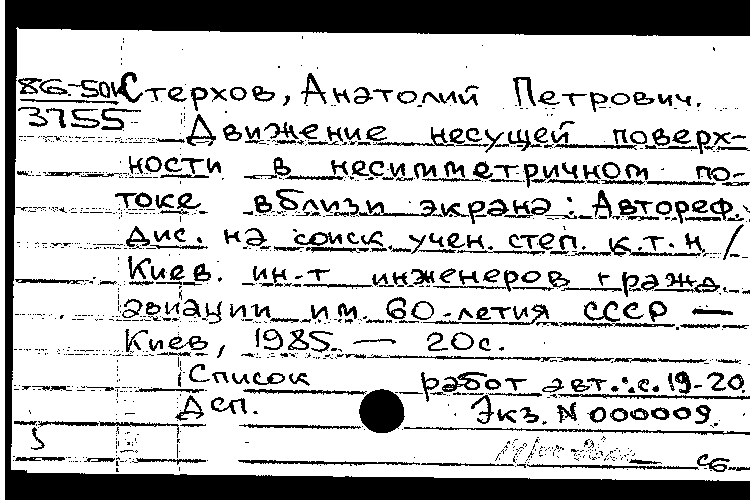 86-50к Стерхов, Анатолий Петрович.
3755 Движение несущей поверх-
ности в несимметричном по-
токе вблизи экрана: Автореф.
дис. на соиск. учен. степ. к.т.н /
Киев. ин-т инженеров гражд.
авиации им. 60-летия СССР —
Киев, 1985. — 20с.
Список работ авт.: с. 19-20
Дсп. Экз. N 000009.
сб